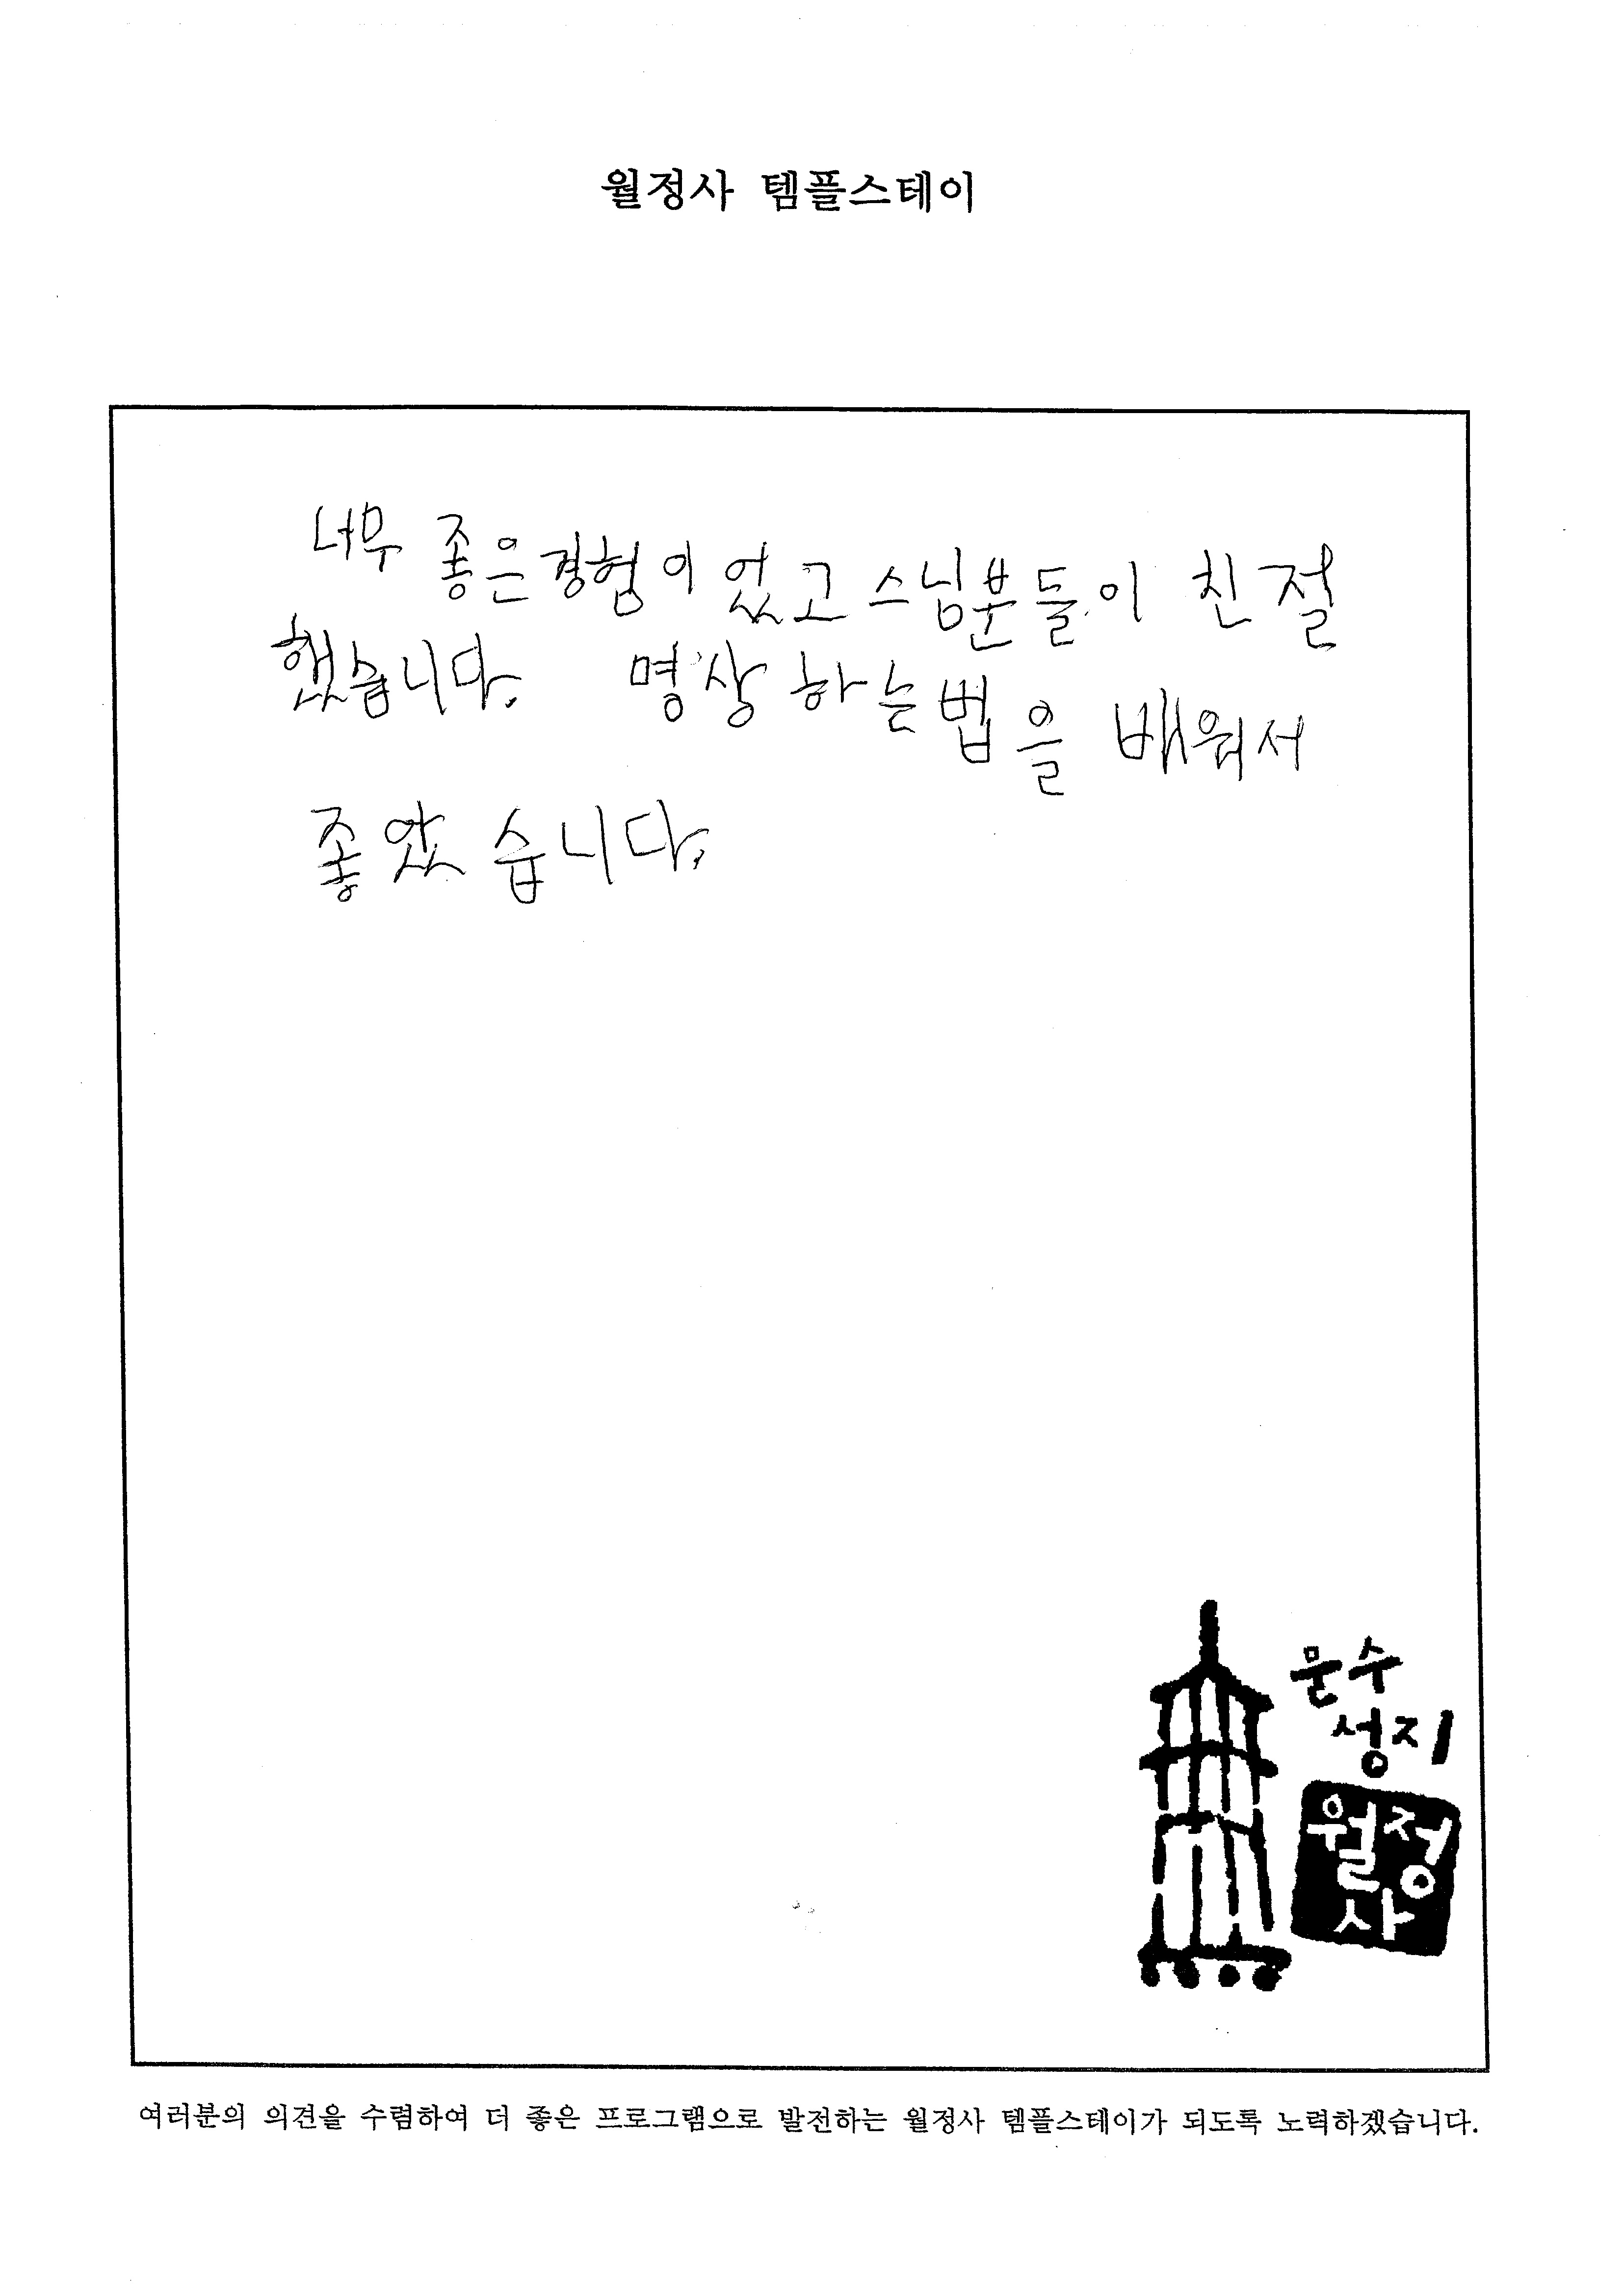 월정사 템플스테이
너무 좋은경험이었고 스님분들이 친절
했습니다. 명상 하는법을 배워서
좋았습니다.
문수
성지
월정
사
여러분의 의견을 수렴하여 더 좋은 프로그램으로 발전하는 월정사 템플스테이가 되도록 노력하겠습니다.